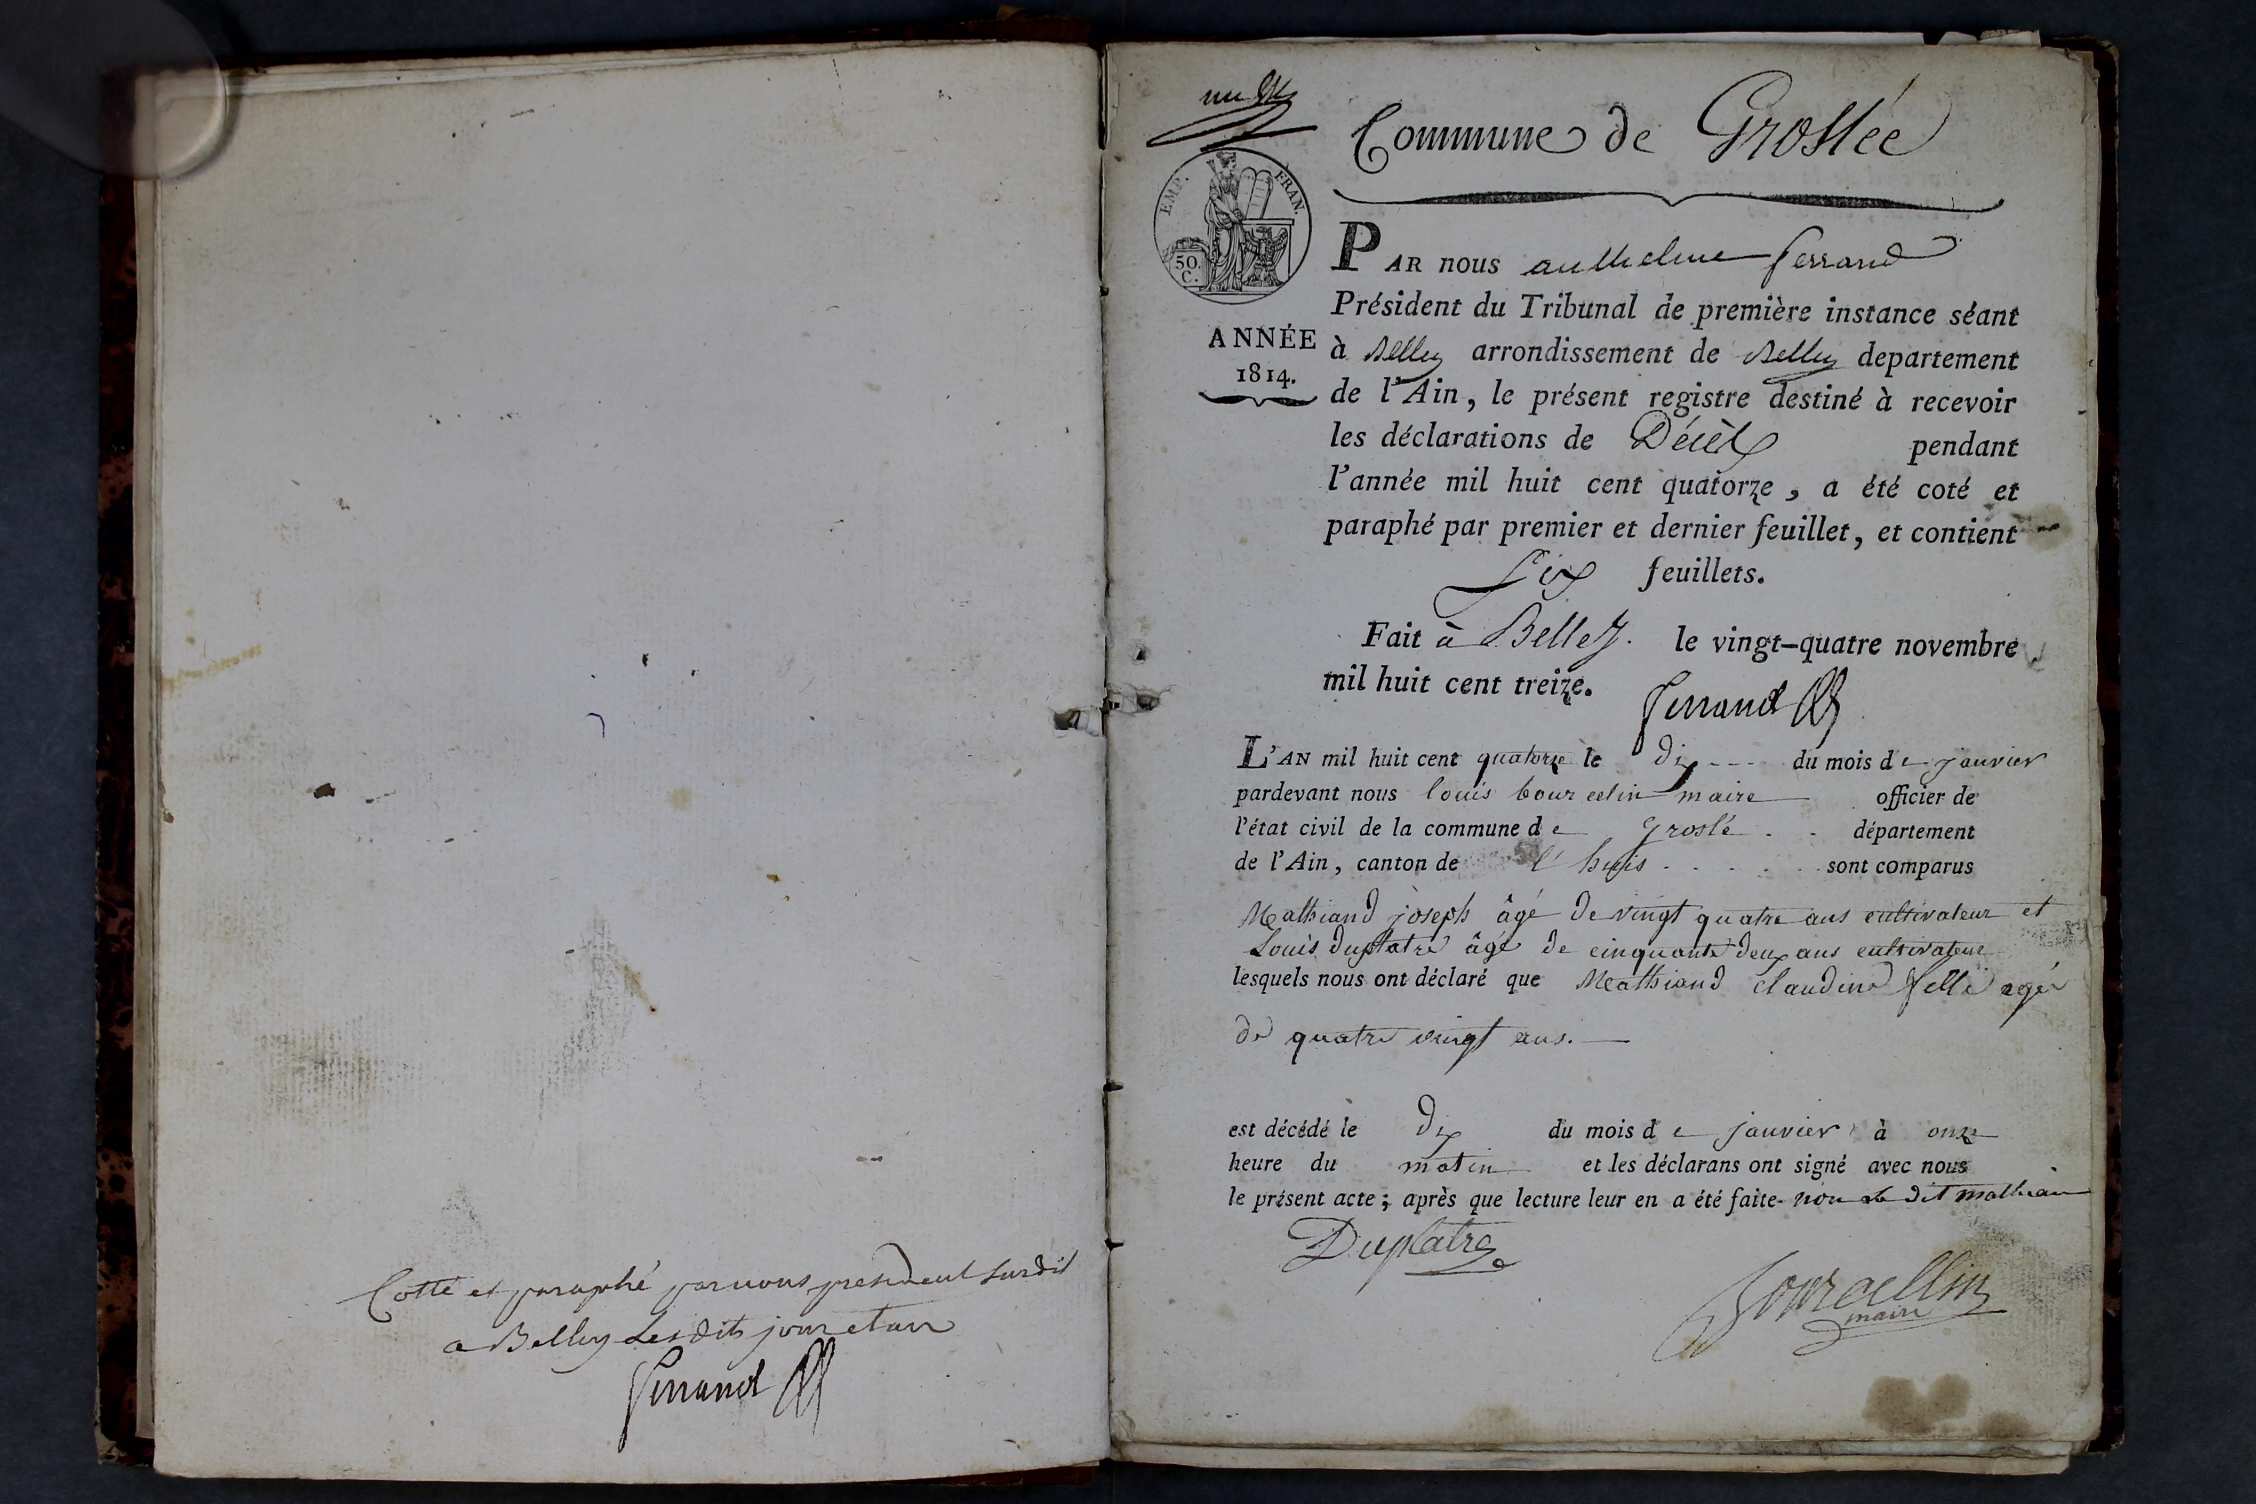 Cotté et paraphé par nous president susdit
a Belley Lesdits jour et an
Ferrand
Commune de Groslée
EMP. FRAN.
50. C.
ANNÉE
1814.
PAR nous anthelme ferrand
Président du Tribunal de première instance séant
à Belley arrondissement de Belley departement
de l'Ain, le présent registre destiné à recevoir
les déclarations de Décès pendant
l'année mil huit cent quatorze, a été coté et
paraphé par premier et dernier feuillet, et contient
Six feuillets.
Fait à Belley. le vingt-quatre novembre
mil huit cent treize.
Ferrand
L'AN mil huit cent quatorze le dix --- du mois de janvier
pardevant nous louis bourcelin maire officier de
l'état civil de la commune de groslé . . département
de l'Ain, canton de l'huis . . . . . sont comparus
Mathiand joseph âgé de vingt quatre ans cultivateur et
Louis Duplatre âgé de cinquante deux ans cultivateur
lesquels nous ont déclaré que Mathiand claudine fille agée
de quatre vingt ans.
est décédé le dix du mois de janvier à onze
heure du matin et les déclarans ont signé avec nous
le présent acte; après que lecture leur en a été faite. non le dit mathian
Duplatre
Bourcellin
maire